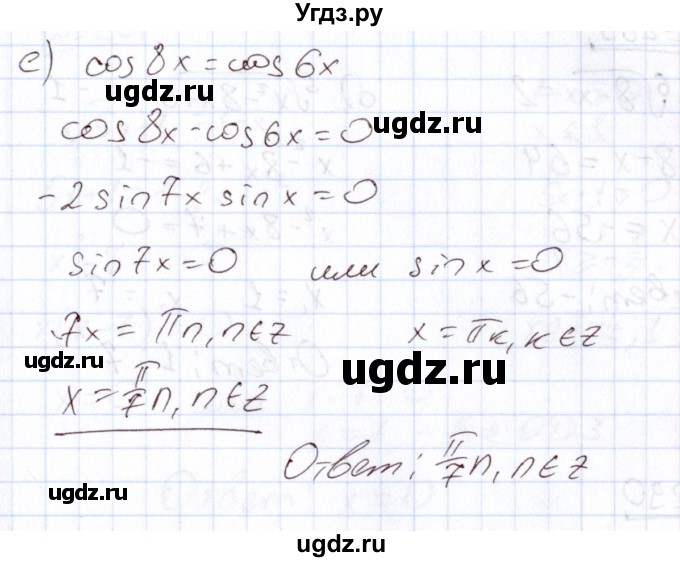 Угдз.ру
е) cos 8x = cos 6x
gudz.ru
cos 8x - cos 6x = 0
ugdz.ru
-2 sin 7x sin x = 0
sin 7x = 0 или sin x = 0
7x = πn, n ∈ z x = πk, k ∈ z
ugdz.ru
ugdz.ru
x = π/7 n, n ∈ z
Ответ: π/7 n, n ∈ z
ugdz.ru
ugdz.ru